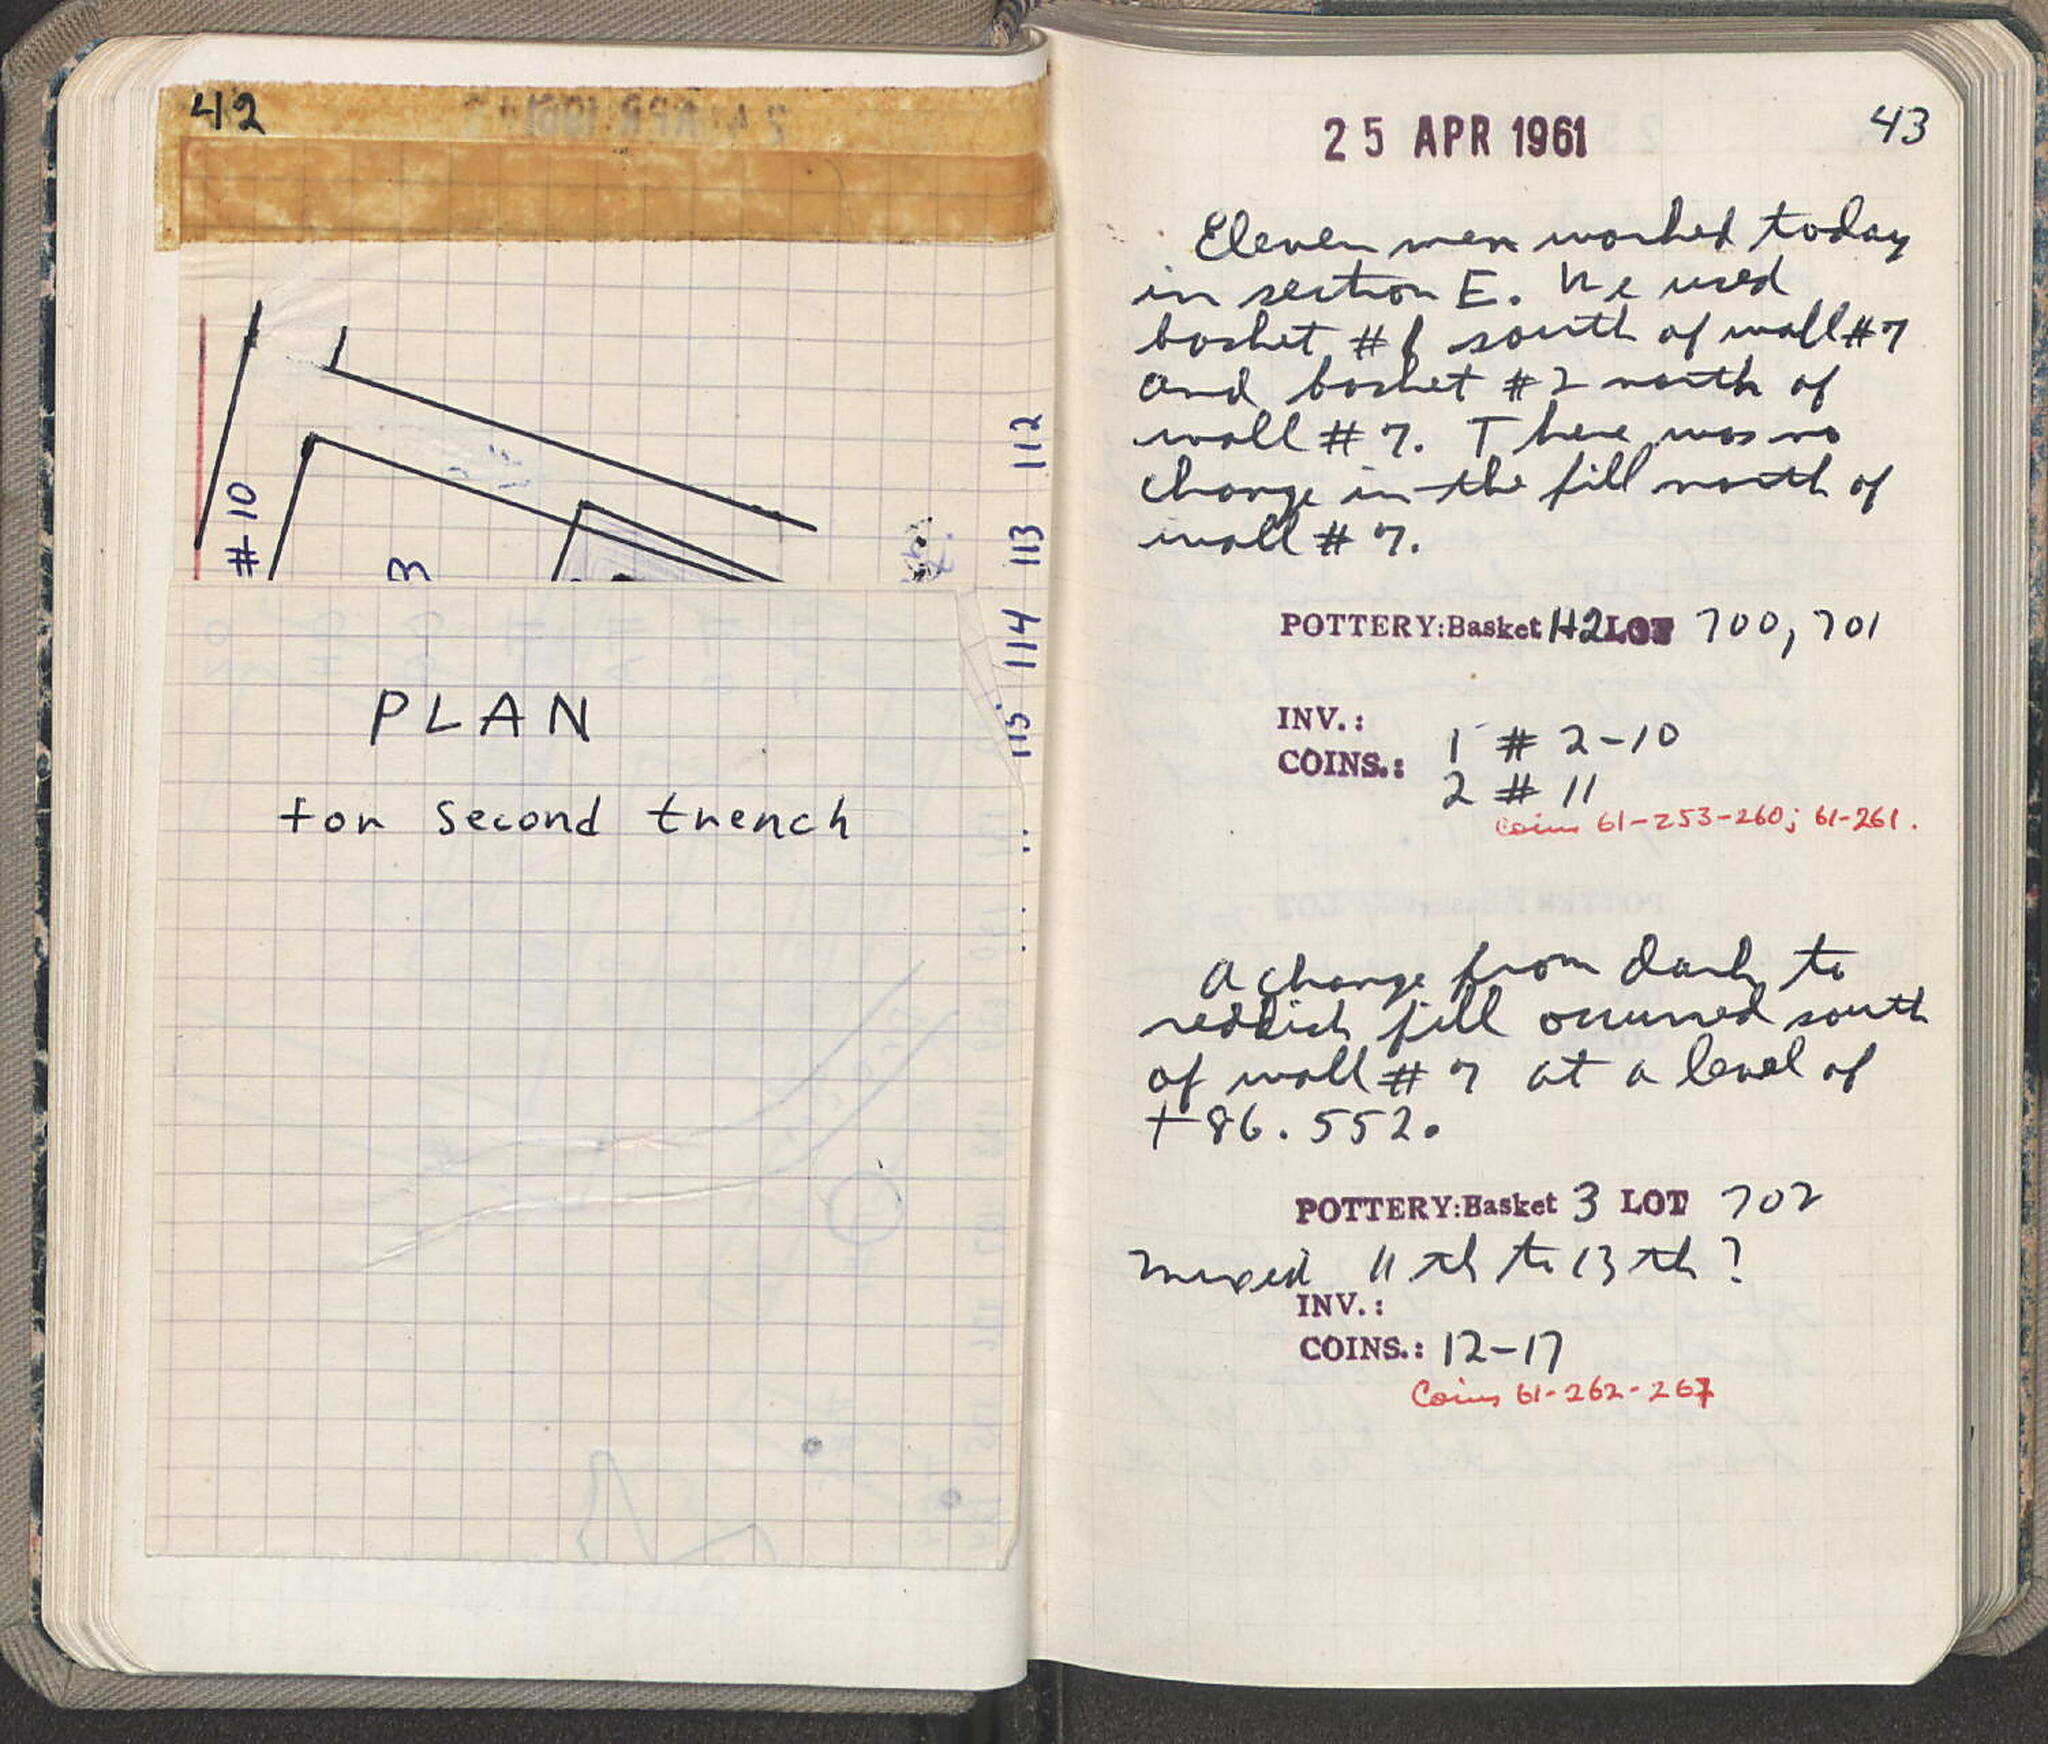 42
# 10
3
112
113
114
115
PLAN
for second trench
43
25 APR 1961
Eleven men worked today
in section E. We used
basket #1 south of wall #7
and basket #2 north of
wall #7. There was no
change in the fill north of
wall #7.
POTTERY:Basket 1+2 LOT 700, 701
INV.:
COINS.: 1 # 2-10
2 # 11
Coins 61-253-260; 61-261.
A change from dark to
reddish fill occurred south
of wall #7 at a level of
+86.552.
POTTERY:Basket 3 LOT 702
mixed 11th to 13th?
INV.:
COINS.: 12-17
Coins 61-262-267